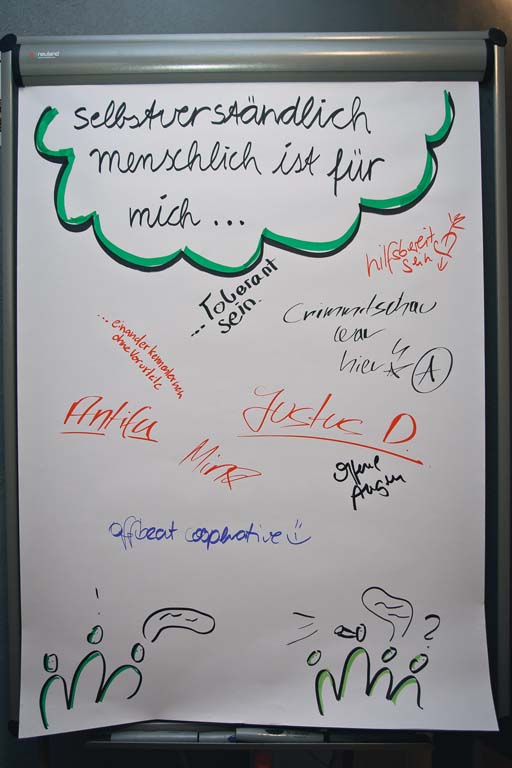 neuland
selbstverständlich
menschlich ist für
mich ...
hilfsbereit
sein
... Tolerant
sein.
Crimmitschau
war
hier
A
... einander kennenlernen
ohne Vorurteile
Antifa
Justus D.
Mina
offene
Augen
offbeat cooperative
!
?